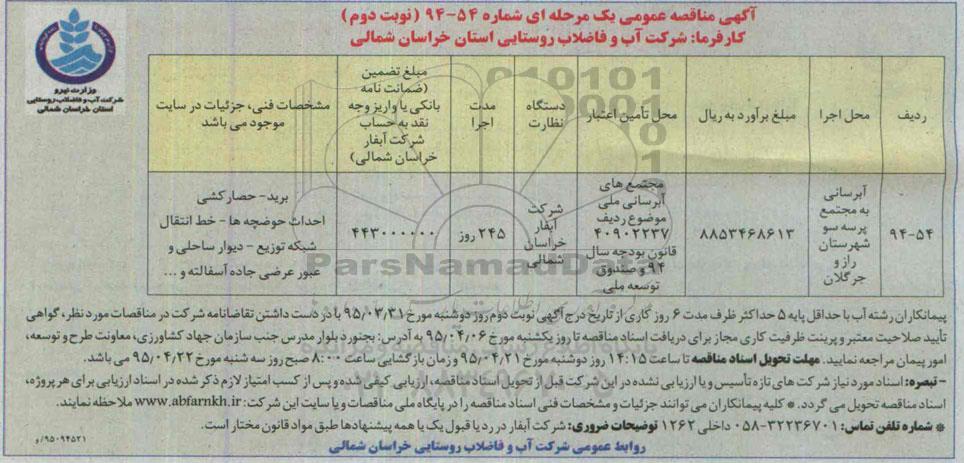 آگهی مناقصه عمومی یک مرحله ای شماره ۵۴-۹۴ (نوبت دوم)
کارفرما: شرکت آب و فاضلاب روستایی استان خراسان شمالی
وزارت نیرو
شرکت آب و فاضلاب روستایی
استان خراسان شمالی
ردیف
محل اجرا
مبلغ برآورد به ریال
محل تأمین اعتبار
دستگاه
نظارت
مدت
اجرا
مبلغ تضمین
(ضمانت نامه
بانکی یا واریز وجه
نقد به حساب
شرکت آبفار
خراسان شمالی)
مشخصات فنی، جزئیات در سایت
موجود می باشد
۹۴-۵۴
آبرسانی
به مجتمع
پرسه سو
شهرستان
راز و
جرگلان
۸۸۵۳۴۶۸۶۱۳
مجتمع های
آبرسانی ملی
موضوع ردیف
۴۰۹۰۲۲۳۷
قانون بودجه سال
۹۴ و صندوق
توسعه ملی
شرکت
آبفار
خراسان
شمالی
۲۴۵ روز
۴۴۳۰۰۰۰۰۰
برید- حصارکشی
احداث حوضچه ها - خط انتقال
شبکه توزیع - دیوار ساحلی و
عبور عرضی جاده آسفالته و ...
ParsNamadData
پیمانکاران رشته آب با حداقل پایه ۵ حداکثر ظرف مدت ۶ روز گاری از تاریخ درج آگهی نوبت دوم روز دوشنبه مورخ ۹۵/۰۳/۳۱ با در دست داشتن تقاضانامه شرکت در مناقصات مورد نظر، گواهی
تأیید صلاحیت معتبر و پرینت ظرفیت کاری مجاز برای دریافت اسناد مناقصه تا روز یکشنبه مورخ ۹۵/۰۴/۰۶ به آدرس: بجنورد بلوار مدرس جنب سازمان جهاد کشاورزی، معاونت طرح و توسعه،
امور پیمان مراجعه نمایید. مهلت تحویل اسناد مناقصه تا ساعت ۱۴:۱۵ روز دوشنبه مورخ ۹۵/۰۴/۲۱ و زمان بازگشایی ساعت ۸:۰۰ صبح روز سه شنبه مورخ ۹۵/۰۴/۲۲ می باشد.
- تبصره: اسناد مورد نیاز شرکت های تازه تأسیس و یا ارزیابی نشده در این شرکت قبل از تحویل اسناد مناقصه، ارزیابی کیفی شده و پس از کسب امتیاز لازم ذکر شده در اسناد ارزیابی برای هر پروژه،
اسناد مناقصه تحویل می گردد. * کلیه پیمانکاران می توانند جزئیات و مشخصات فنی اسناد مناقصه را در پایگاه ملی مناقصات و یا سایت این شرکت: www.abfarnkh.ir ملاحظه نمایند.
* شماره تلفن تماس: ۳۲۲۳۶۷۰۱-۰۵۸ داخلی ۱۲۶۲ توضیحات ضروری: شرکت آبفار در رد یا قبول یک یا همه پیشنهادها طبق مواد قانون مختار است.
روابط عمومی شرکت آب و فاضلاب روستایی خراسان شمالی
۹۵۰۹۴۵۲۱/و